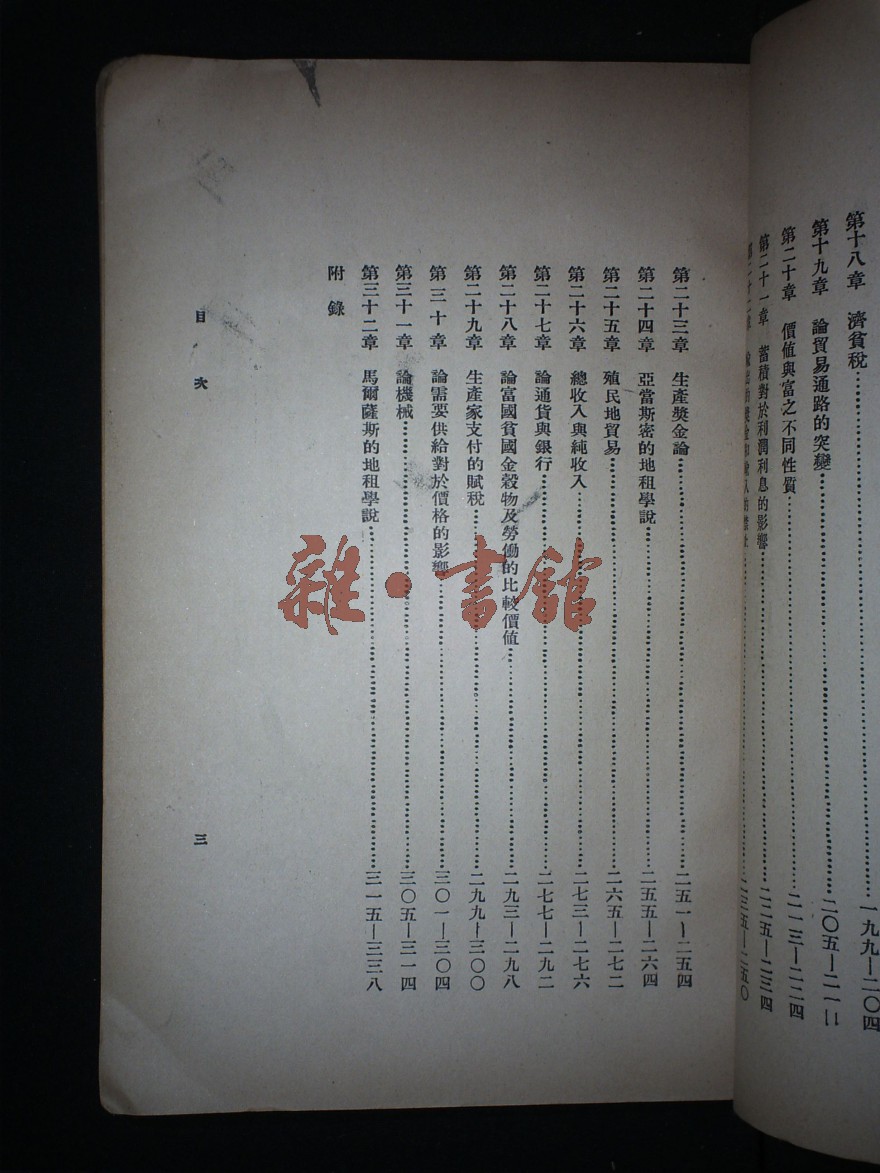 第十八章　濟貧稅……一九九—二〇四
第十九章　論貿易通路的突變……二〇五—二一
第二十章　價值與富之不同性質……二一三—二二四
第二十一章　蓄積對於利潤利息的影響……二二五—二三四
二三五—二五〇
第二十三章　生產獎金論……二五一—二五四
第二十四章　亞當斯密的地租學說……二五五—二六四
第二十五章　殖民地貿易……二六五—二七二
第二十六章　總收入與純收入……二七三—二七六
第二十七章　論通貨與銀行……二七七—二九二
第二十八章　論富國貧國金穀物及勞働的比較價值……二九三—二九八
第二十九章　生產家支付的賦稅……二九九—三〇〇
第三十章　論需要供給對於價格的影響……三〇一—三〇四
第三十一章　論機械……三〇五—三一四
第三十二章　馬爾薩斯的地租學說……三一五—三三八
附錄
目次
三
雜·書館